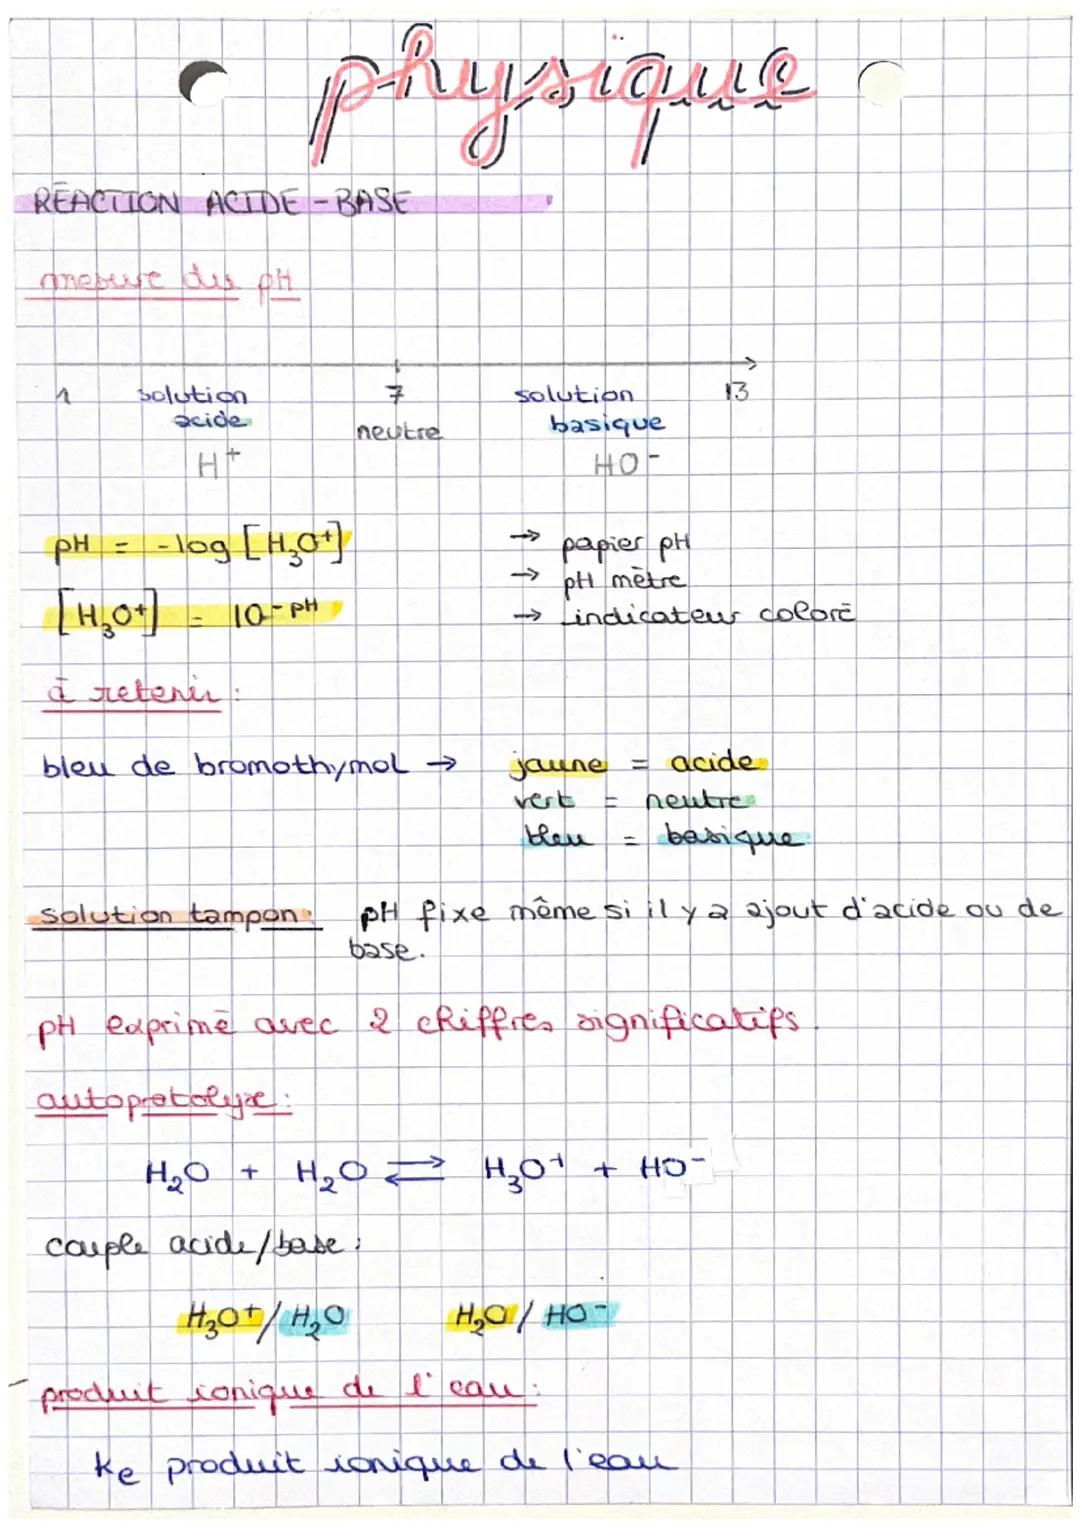 physique
RÉACTION ACIDE-BASE
mesure du pH
1 solution acide H⁺
7 neutre
solution basique HO⁻
13
pH = -log [H₃O⁺]
[H₃O⁺] = 10⁻ᵖᴴ
→ papier pH
→ pH mètre
→ indicateur coloré
à retenir :
bleu de bromothymol → jaune = acide
vert = neutre
bleu = basique
solution tampon: pH fixe même si il y a ajout d'acide ou de
base.
pH exprimé avec 2 chiffres significatifs.
autoprotolyse:
H₂O + H₂O ⇌ H₃O⁺ + HO⁻
couple acide/base:
H₃O⁺/H₂O H₂O/HO⁻
produit ionique de l'eau:
Ke produit ionique de l'eau